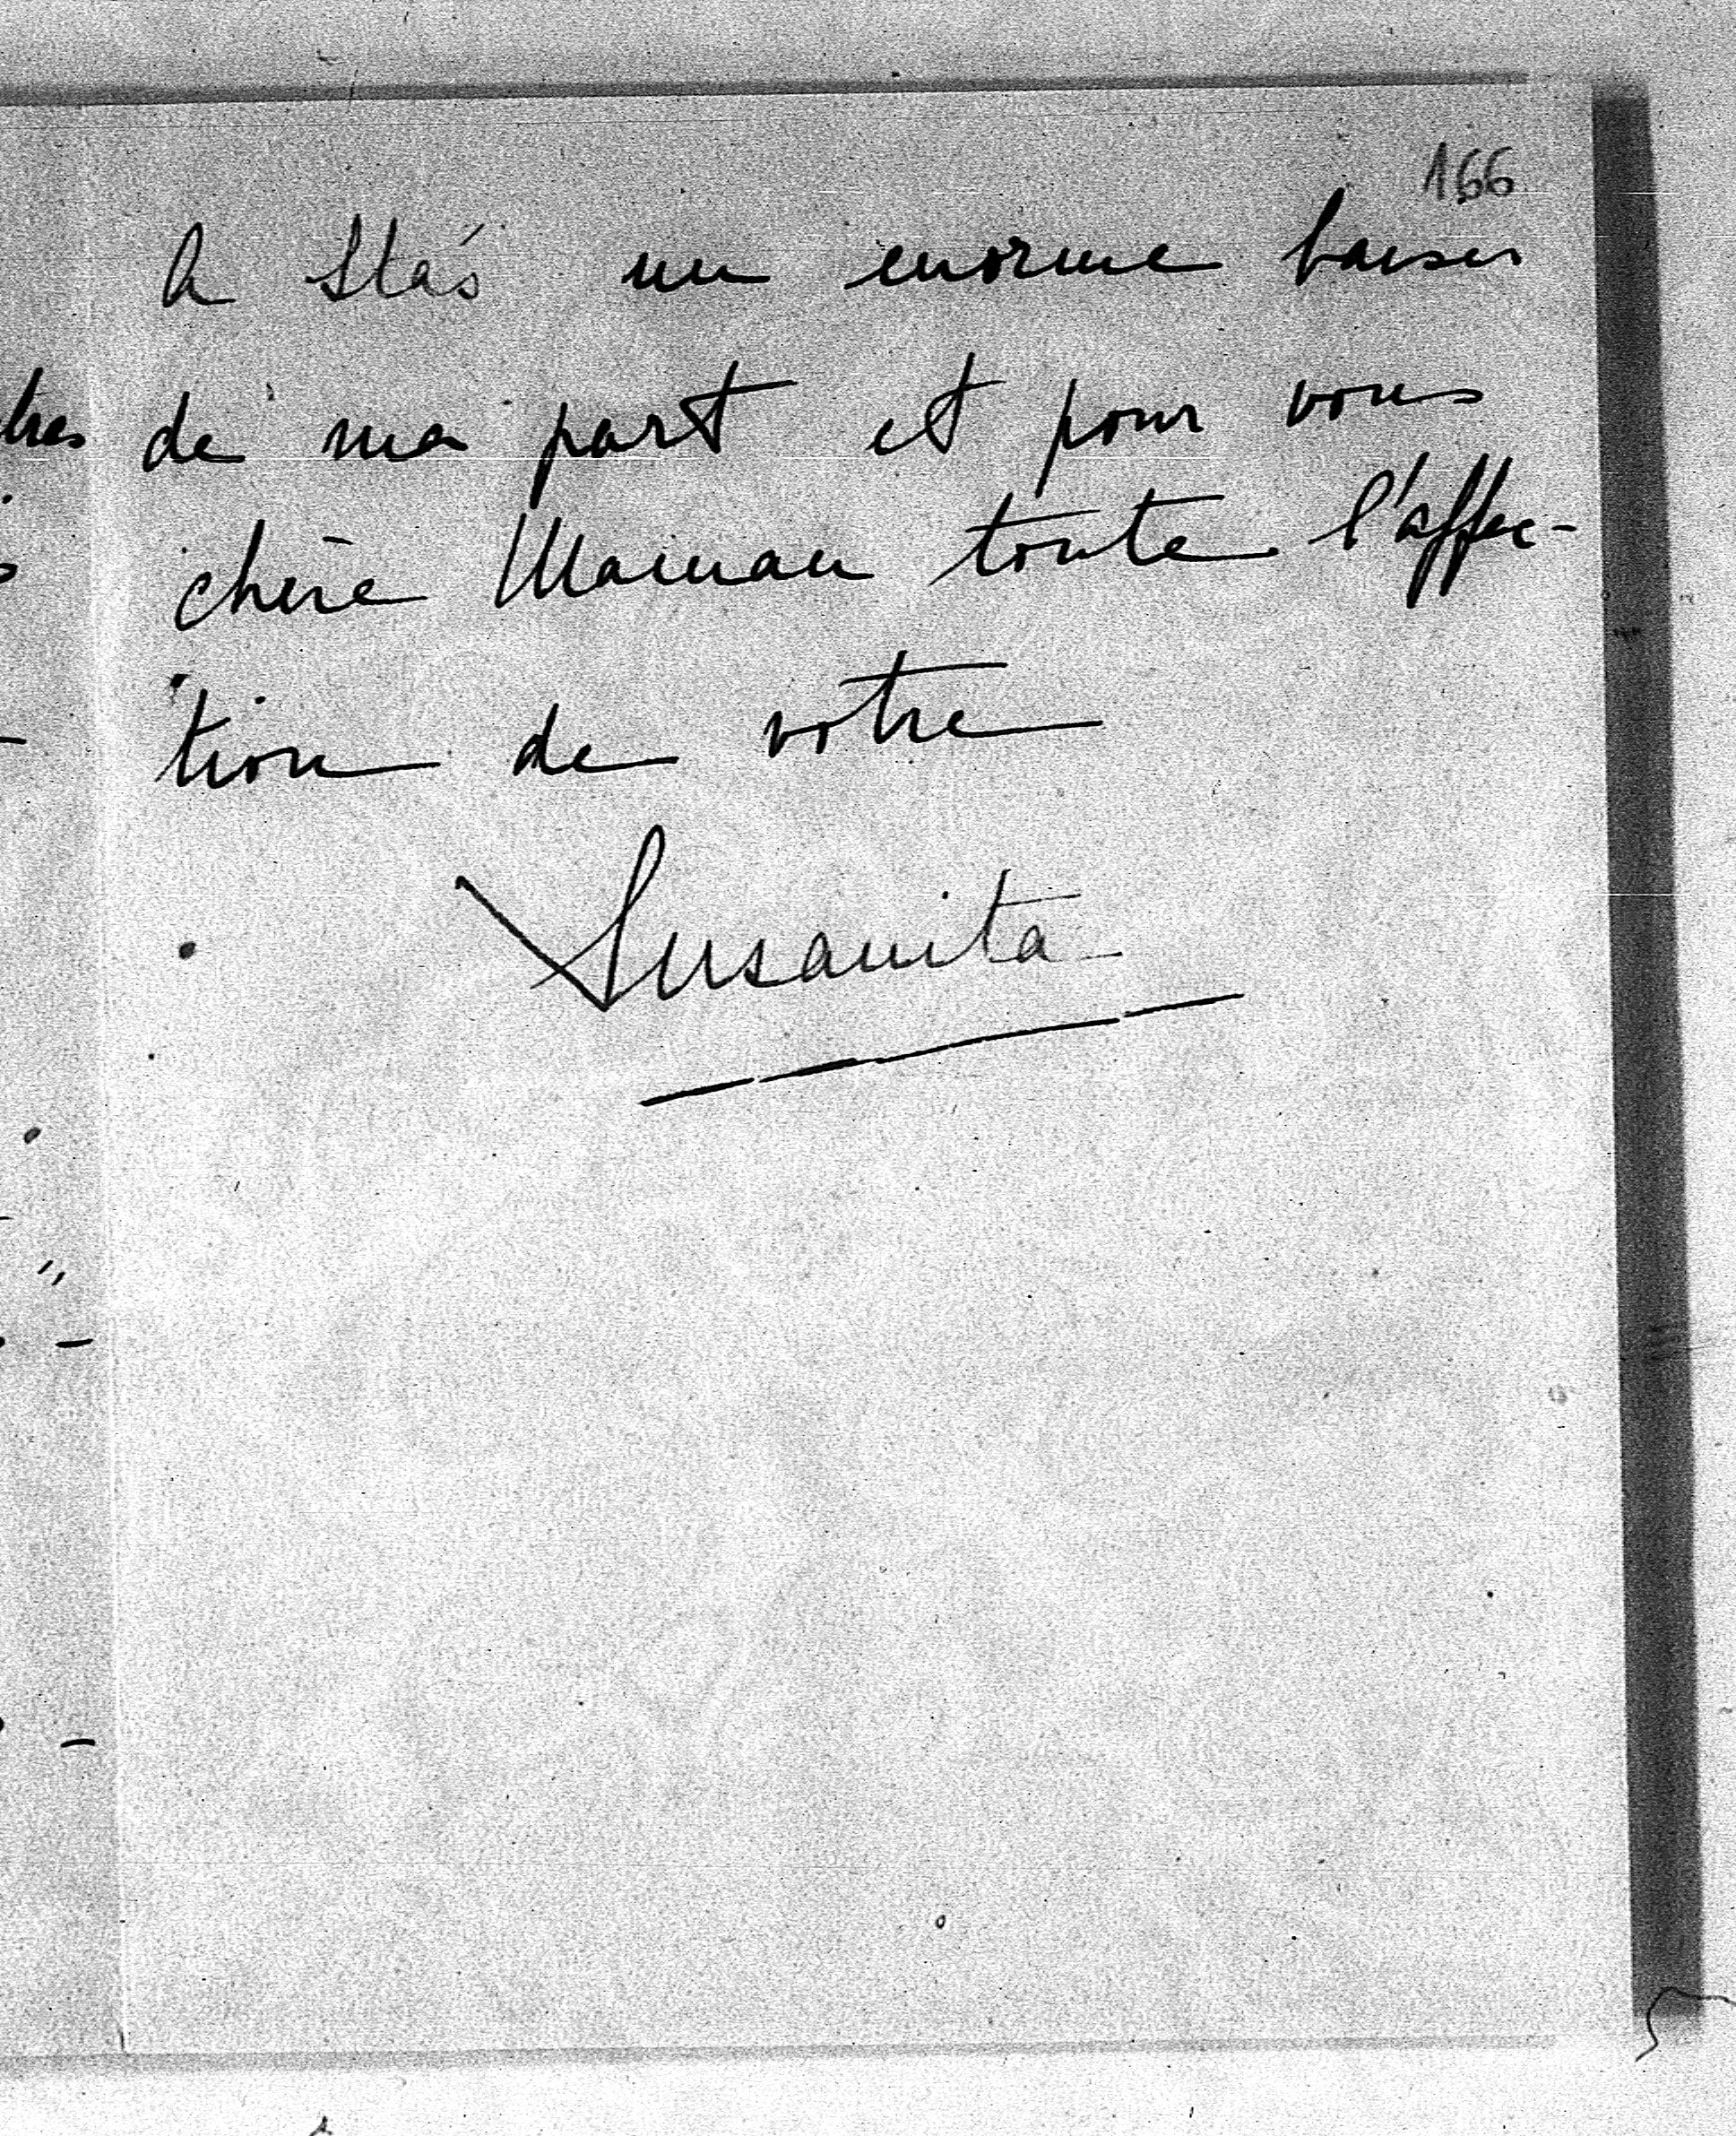 166
A Staś un enorme baiser
de ma part et pour vous
chère Maman toute l'affec-
tion de votre
Susanita